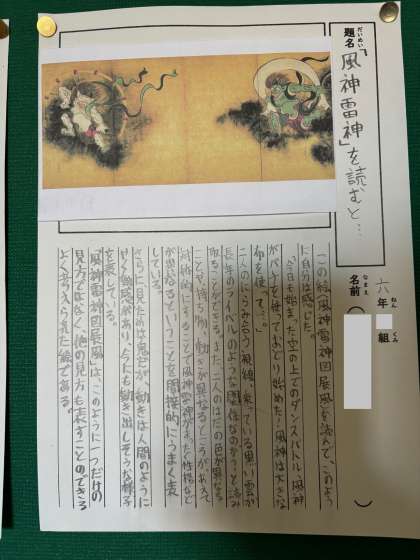 題名「風神雷神」を読むと…
だいめい
六年 組
ねん くみ
名前
なまえ
この絵、風神雷神図屏風を読んで、このよう
に自分は感じた。
「今日も始まった空の上でのダンスバトル。風神
がバチを使っておどり始めた！風神は大きな
布を使って…。」
二人のにらみ合う視線、乗っている黒い雲が
長年のライバルのような関係なのかなと読み
取ることができる。また、二人のはだの色が異なる
ことや、持ち物、動きが異なるところがあえて
対称的にすることで風神雷神がまったく性格など
が異なるということを間接的にうまく表
している。
さらに、見た目は鬼だが、動きは人間のように
動感があり、今にも動き出しそうな様子
を表している。
『風神雷神図屏風』は、このように一つだけの
見方ではなく、他の見方も表すことのできる
よく考えられた絵である。